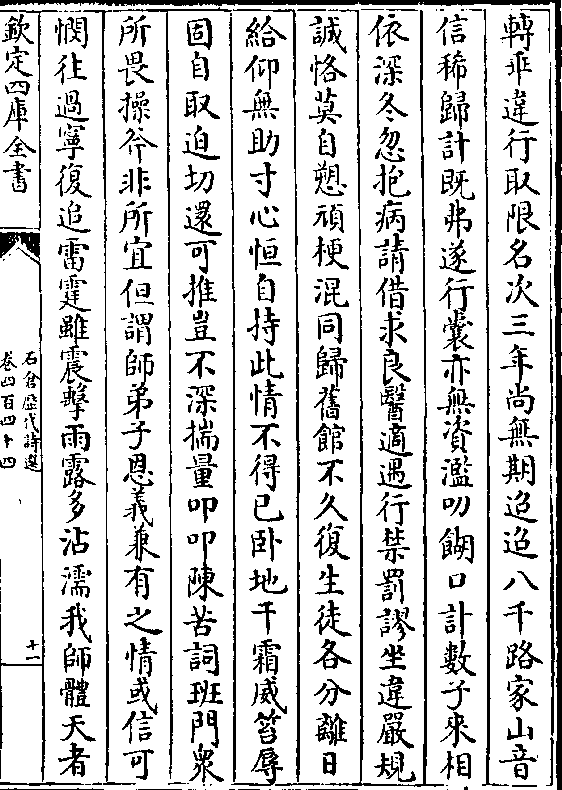 轉乖違行取限名次三年尚無期迢迢八千路家山音
信稀歸計既弗遂行囊亦無資濫叨餬口計數子來相
依深冬忽抱病請借求良醫適遇行禁罰謬坐違嚴規
誠恪莫自愬頑梗混同歸舊館不久復生徒各分離日
給仰無助寸心恒自持此情不得已卧地干霜威笞辱
固自取迫切還可推豈不深揣量叩叩陳苦詞班門衆
所畏操斧非所宜但謂師弟子恩義兼有之情或信可
憫往過寧復追雷霆雖震擊雨露多沾濡我師體天者
欽定四庫全書
石倉歴代詩選
卷四百四十四
十一